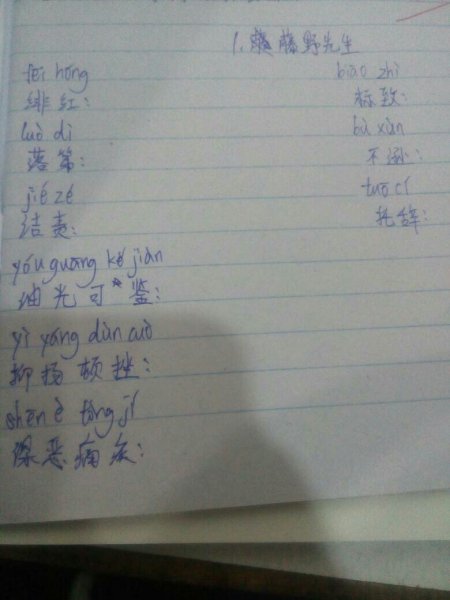 1.藤野先生
fēi hóng
绯红:
luò dì
落第:
jié zé
诘责:
yóu guāng kě jiàn
油光可鉴:
yì yáng dùn cuò
抑扬顿挫:
shēn è tòng jí
深恶痛疾:
biāo zhì
标致:
bù xùn
不逊:
tuō cí
托辞: